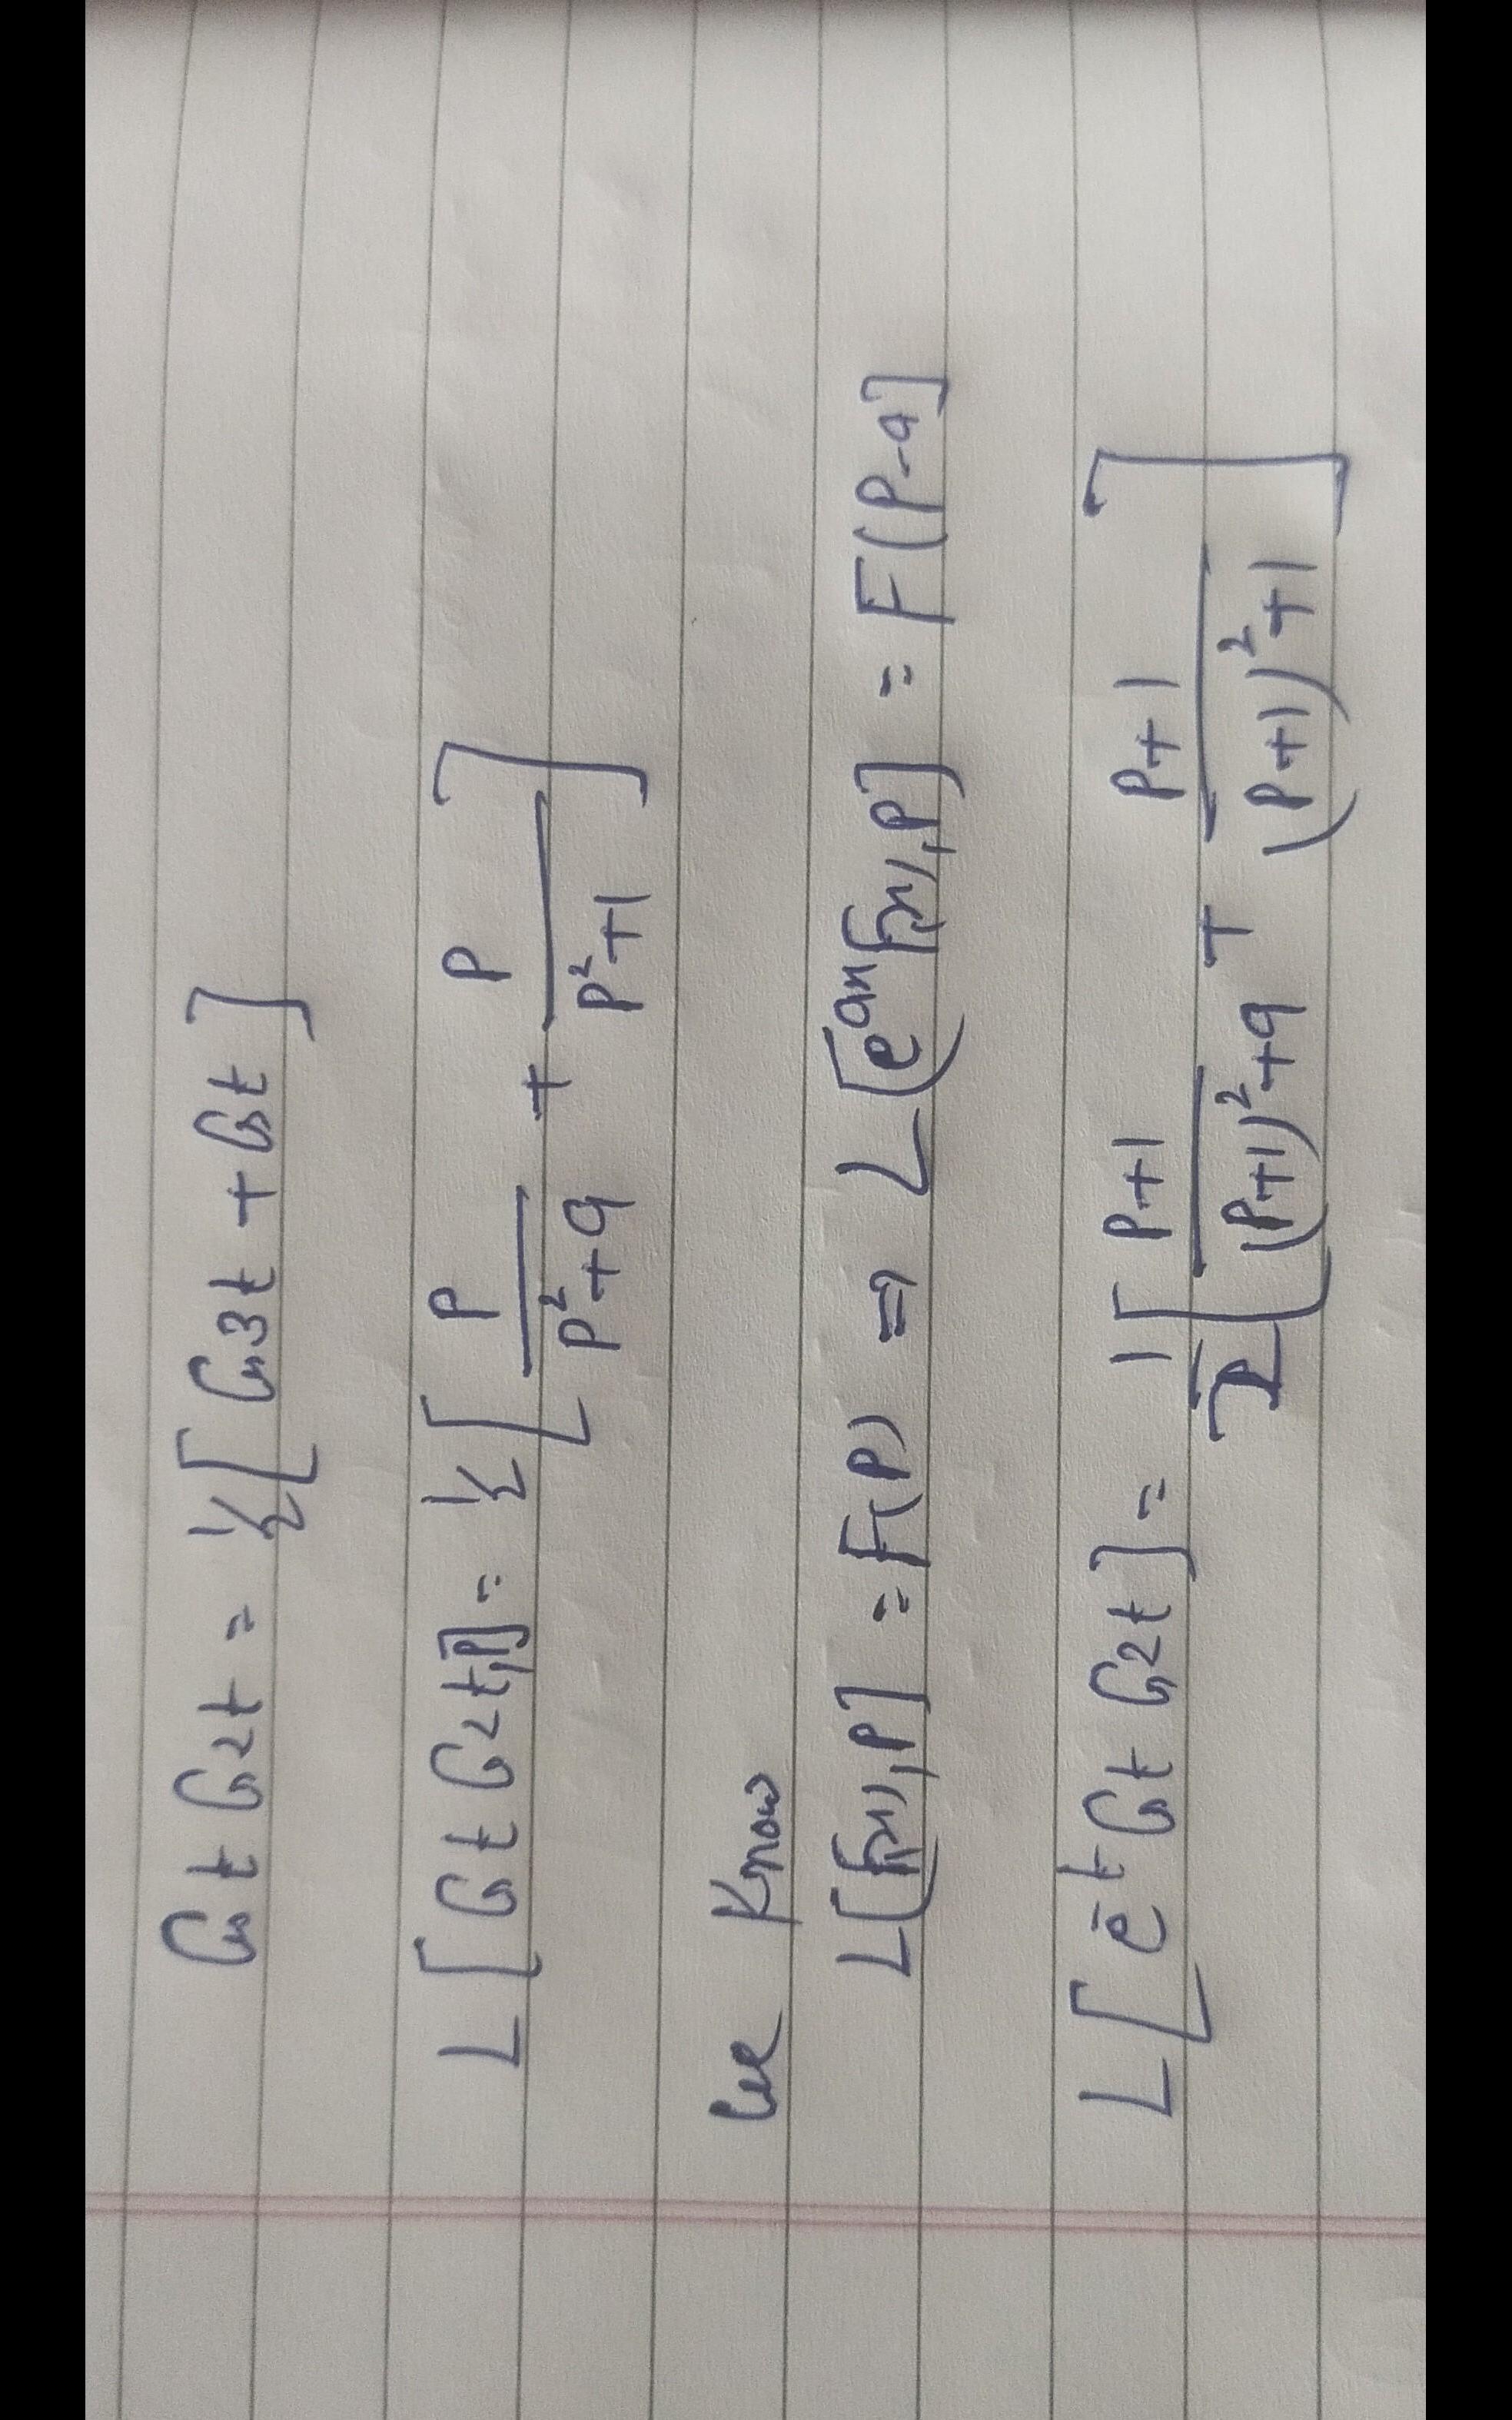 Cos t Cos 2t = 1/2 [Cos 3t + Cos t]
L[Cos t Cos 2t, p] = 1/2 [p/(p²+9) + p/(p²+1)]
we know
L[f(x), p] = F(p) ⇒ L[e^{ax} f(x), p] = F(p-a]
L[e^{-t} Cos t Cos 2t] = 1/2 [(p+1)/((p+1)²+9) + (p+1)/((p+1)²+1)]